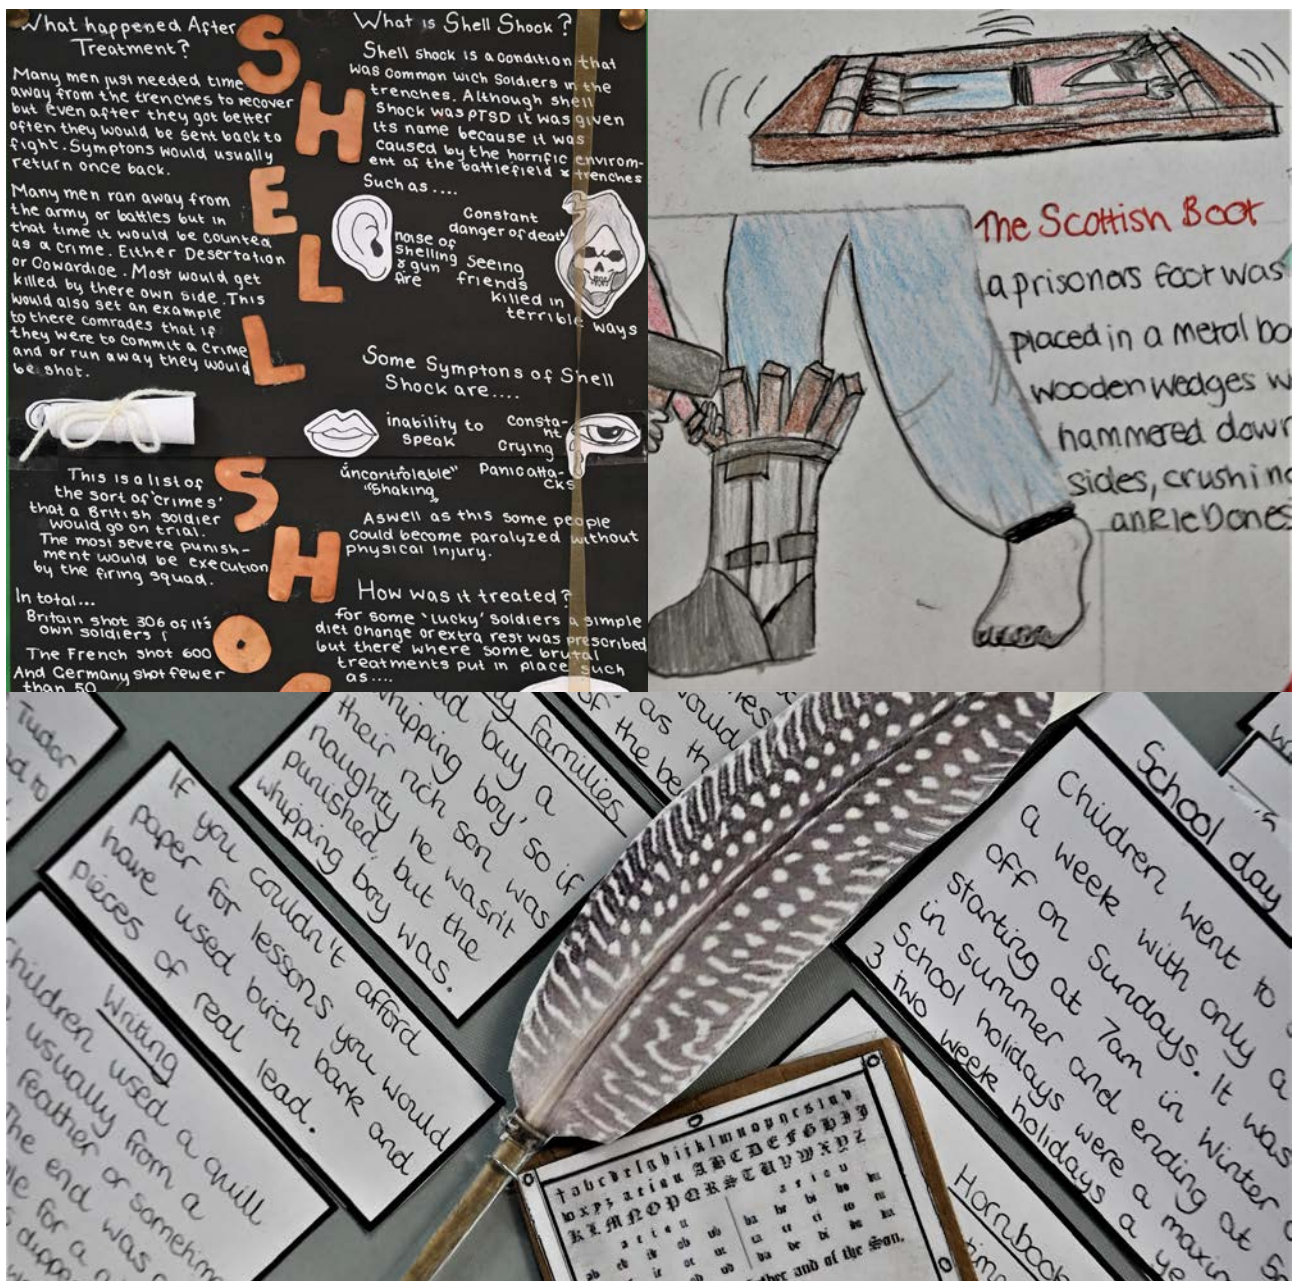 What happened After
Treatment?
Many men just needed time
away from the trenches to recover
but even after they got better
often they would be sent back to
fight. Symptons would usually
return once back.
Many men ran away from
the army or battles but in
that time it would be counted
as a crime. Either Desertation
or Cowardice. Most would get
killed by there own side. This
would also set an example
to there comrades that if
they were to commit a crime
and or run away they would
be shot.
This is a list of
the sort of 'crimes'
that a British soldier
would go on trial.
The most severe punish-
ment would be execution
by the firing squad.
In total...
Britain shot 306 of it's
own soldiers
The French shot 600
And Germany shot fewer
than 50
SHELL
SHO
What is Shell Shock?
Shell shock is a condition that
was common wich soldiers in the
trenches. Although shell
shock was PTSD it was given
its name because it was
caused by the horrific environm-
ent of the battlefield & trenches
Such as....
noise of
shelling
& gun
fire
Constant
danger of death
Seeing
friends
killed in
terrible ways
Some Symptons of Shell
Shock are....
inability to
speak
consta-
nt
crying
"uncontrolable"
"shaking"
Panic atta-
cks
Aswell as this some people
could become paralyzed without
physical injury.
How was it treated?
for some 'lucky' soldiers a simple
diet change or extra rest was prescribed
but there where some brutal
treatments put in place such
as....
The Scottish Boot
a prisoners foot was
placed in a metal bo
wooden wedges w
hammered down
sides, crushing
ankle bones
Tudor
to
If you couldn't afford
paper for lessons you would
have used birch bark and
pieces of real lead.
Writing
Children used a quill
usually from a
feather or
The end was
families
buy a
'whipping boy' so if
their rich son was
naughty he wasn't
punished, but the
whipping boy was.
as th
of the be
School day
Children went to
a week with only a
off on Sundays. It was
starting at 7am in Winter
in summer and ending at 5
School holidays were a maxim
3 two week holidays a ye
Hornbook
A B C D E F G H I J
K L M N O P Q R S T U V W X Y Z
and of the Son.